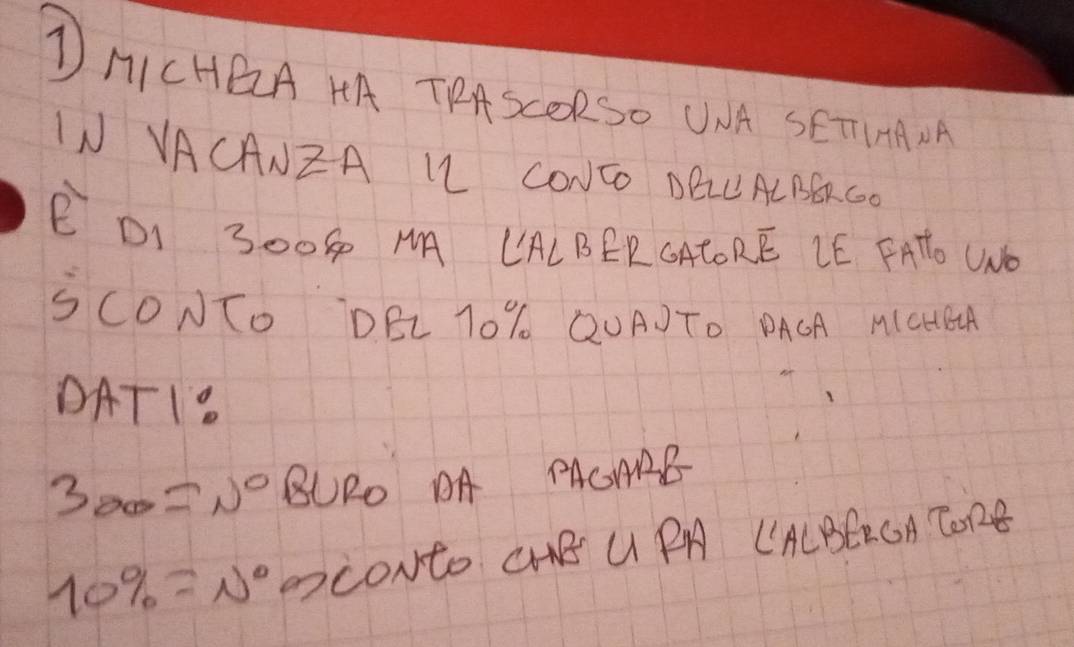 1) MICHELA HA TRASCORSO UNA SETTIMANA
IN VACANZA IL CONTO DELL'ALBERGO
È DI 300€ MA L'ALBERGATORE LE FATTO UNO
SCONTO DEL 10% QUANTO PAGA MICHELA
DATI:
300 = N° EURO DA PAGARE
10% = N° SCONTO CHE LI FA L'ALBERGATORE